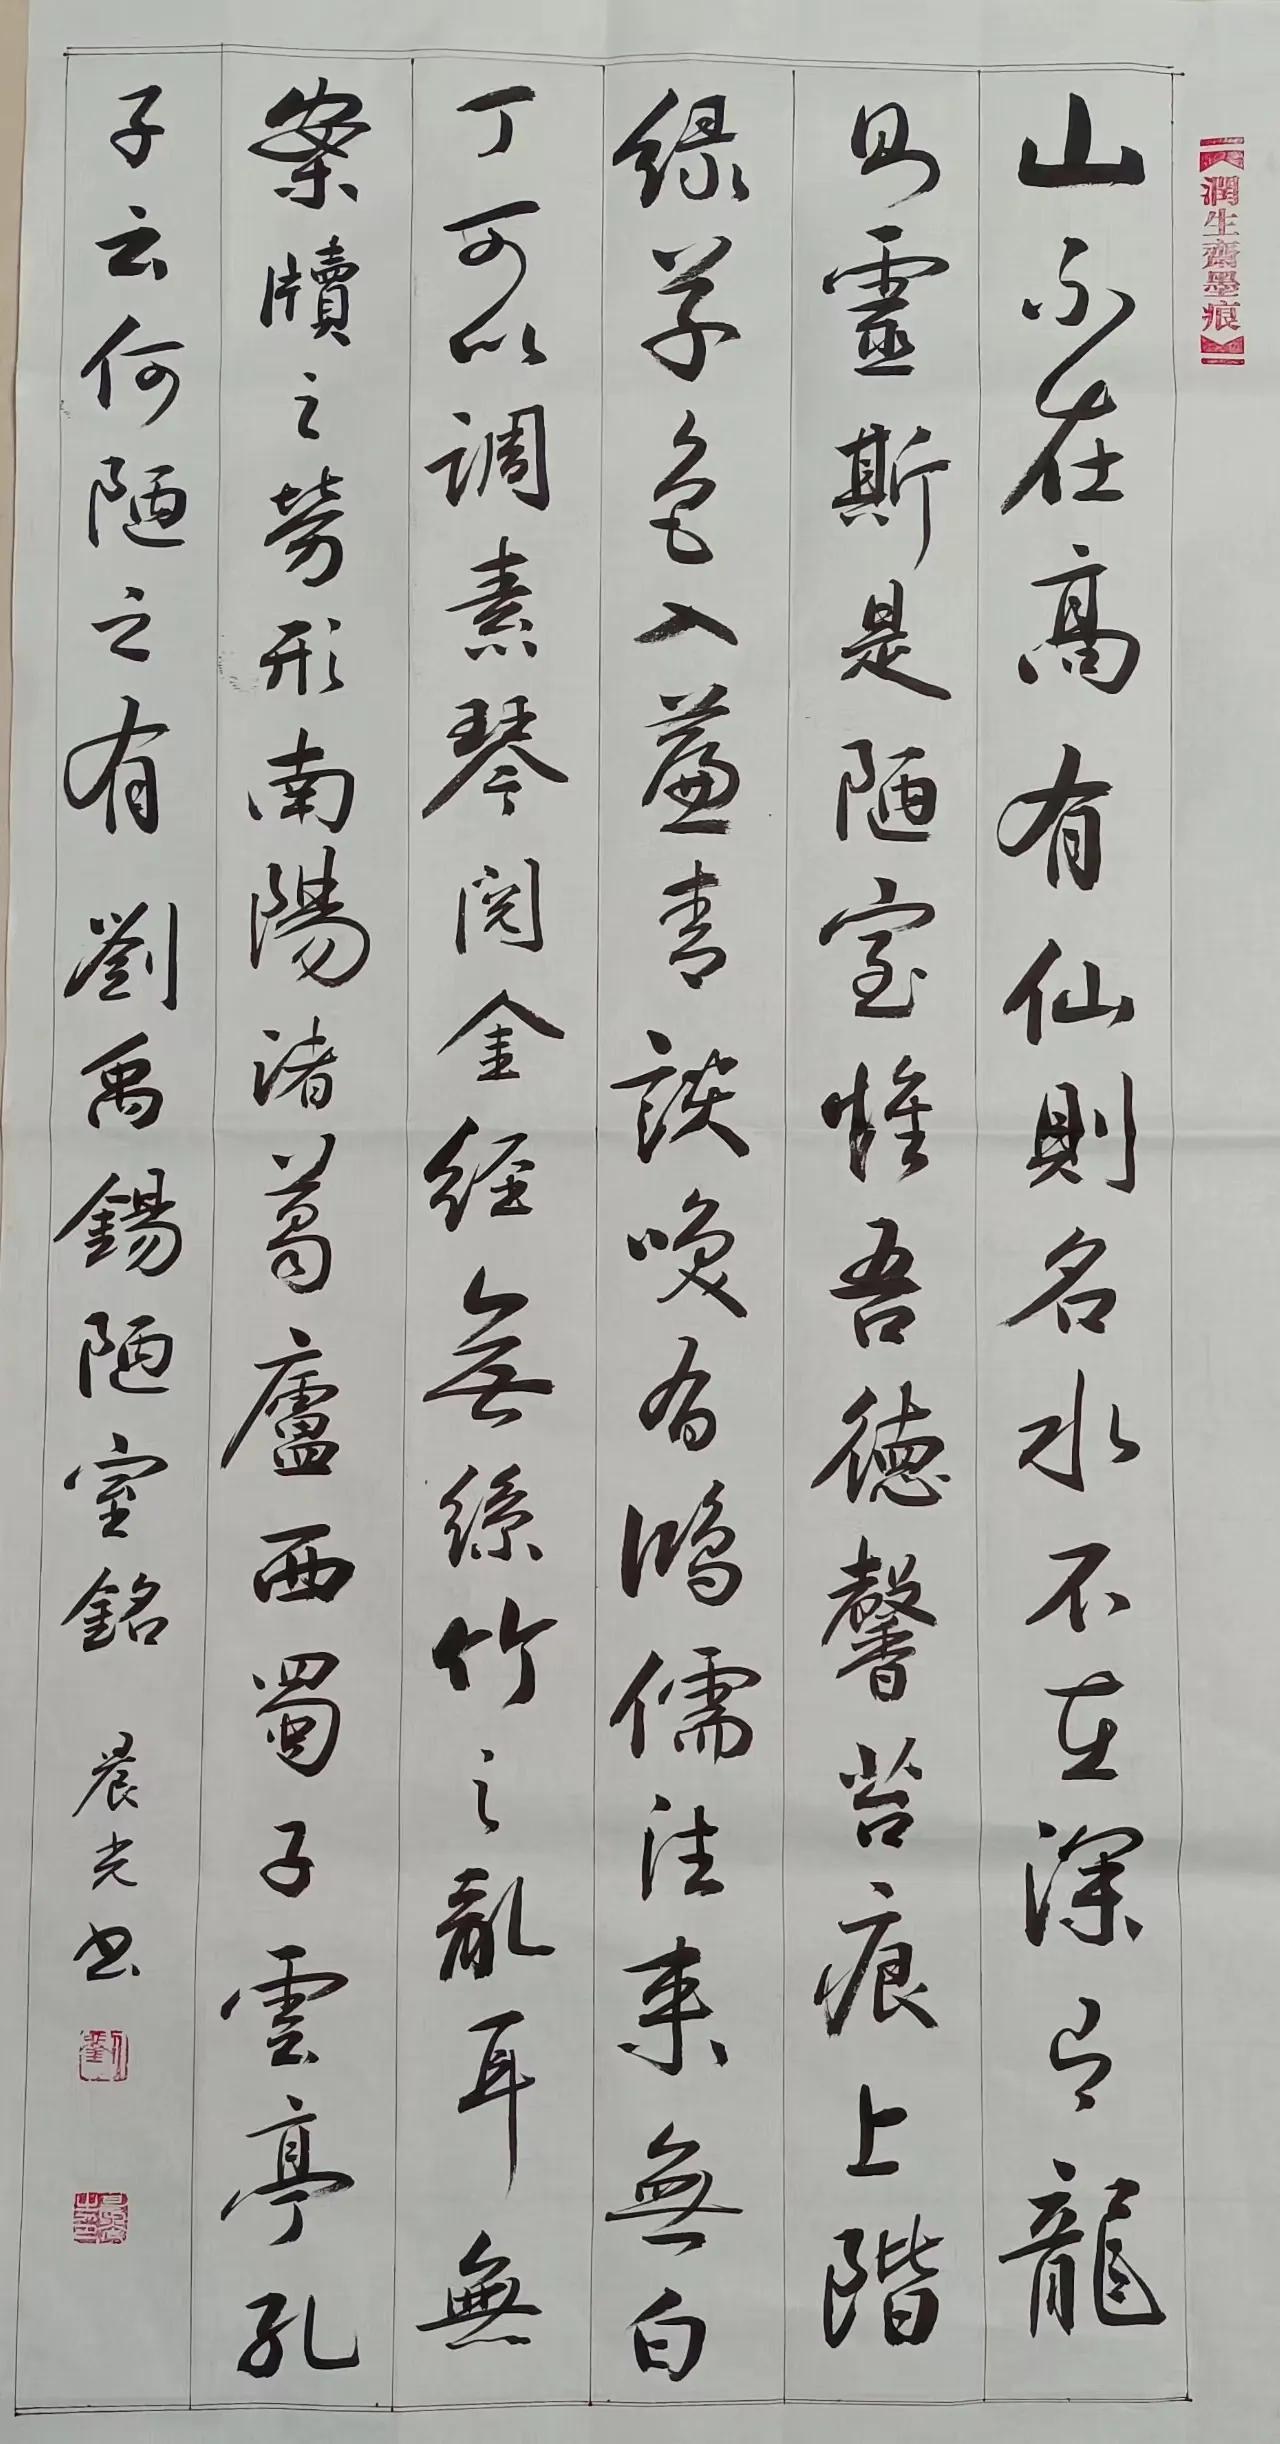 【潤生齋墨痕】
山不在高有仙則名水不在深有龍
則靈斯是陋室惟吾德馨苔痕上階
綠草色入簾青談咲有鴻儒往來無白
丁可以調素琴閱金經無絲竹之亂耳無
案牘之勞形南陽諸葛廬西蜀子雲亭孔
子云何陋之有 劉禹錫陋室銘 晨光书
劉